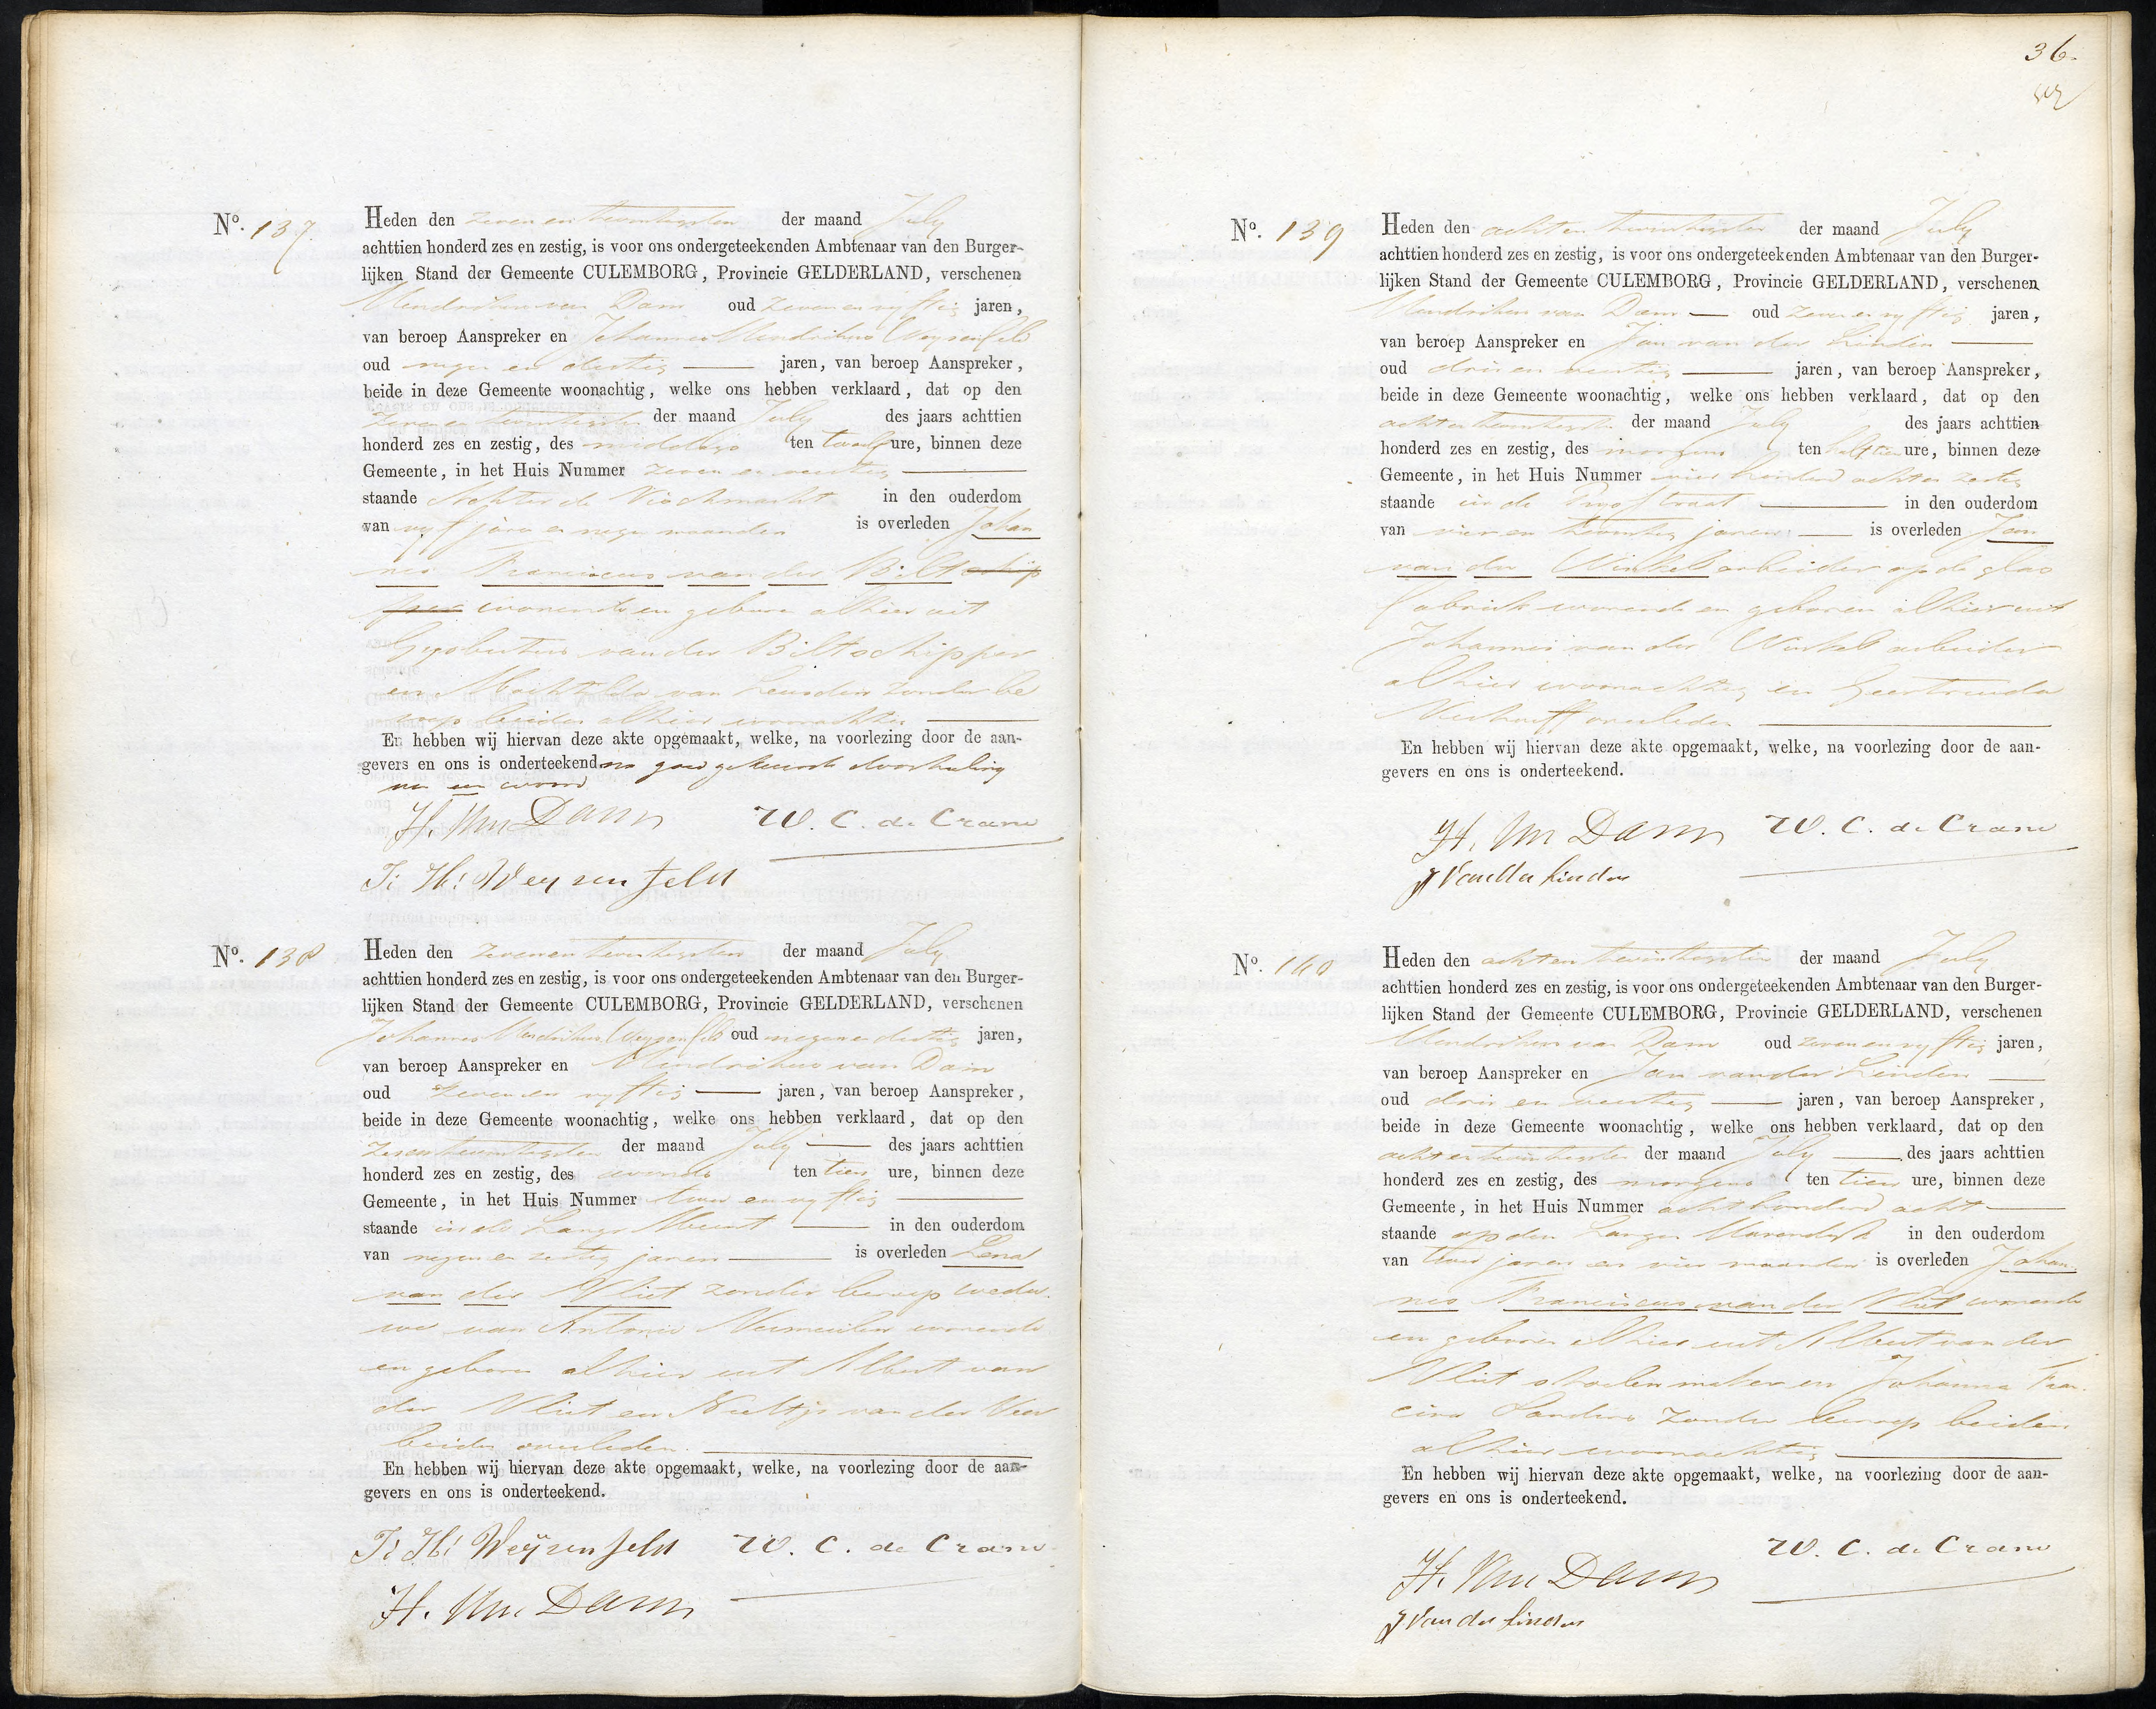 Nº. 137
Heden den zeven en twintigsten der maand July
achttien honderd zes en zestig, is voor ons ondergeteekenden Ambtenaar van den Burger-
lijken Stand der Gemeente CULEMBORG, Provincie GELDERLAND, verschenen
Hendrikus van Dam oud zeven en vyftig jaren,
van beroep Aanspreker en Johannes Hendrikus Weysenfeld
oud negen en dertig jaren, van beroep Aanspreker,
beide in deze Gemeente woonachtig, welke ons hebben verklaard, dat op den
zeven en twintigsten der maand July des jaars achttien
honderd zes en zestig, des middags ten twaalf ure, binnen deze
Gemeente, in het Huis Nummer zeven en
staande Achter de Vischmarkt in den ouderdom
van vyf jaren en negen maanden is overleden Johan
nes Franciscus van der Bilt schip
per wonende en geboren alhier uit
Gysbertus van der Bilt schipper
en Machtilda van Leusden zonder be
roep beiden alhier woonachtig
En hebben wij hiervan deze akte opgemaakt, welke, na voorlezing door de aan-
gevers en ons is onderteekend na goedgekeurde doorhaling
van een woord
H. Van Dam W. C. de Crane
J: H: Weysenfeld
Nº. 138
Heden den zeven en twintigsten der maand July
achttien honderd zes en zestig, is voor ons ondergeteekenden Ambtenaar van den Burger-
lijken Stand der Gemeente CULEMBORG, Provincie GELDERLAND, verschenen
Johannes Hendrikus Weysenfeld oud negen en dertig jaren,
van beroep Aanspreker en Hendrikus van Dam
oud zeven en vyftig jaren, van beroep Aanspreker,
beide in deze Gemeente woonachtig, welke ons hebben verklaard, dat op den
zes en twintigsten der maand July des jaars achttien
honderd zes en zestig, des avonds ten tien ure, binnen deze
Gemeente, in het Huis Nummer twee en vyftig
staande in de Lange Meent in den ouderdom
van negen en zestig jaren is overleden Lena
van der Vliet zonder beroep wedu
we van Antonie Vermeulen wonende
en geboren alhier uit Albert van
der Vliet en Neeltje van der Veer
beiden overleden.
En hebben wij hiervan deze akte opgemaakt, welke, na voorlezing door de aan-
gevers en ons is onderteekend.
J: H: Weÿsenfeld W. C. de Crane
H. Van Dam
36.
Nº. 139
Heden den acht en twintigsten der maand July
achttien honderd zes en zestig, is voor ons ondergeteekenden Ambtenaar van den Burger-
lijken Stand der Gemeente CULEMBORG, Provincie GELDERLAND, verschenen
Hendrikus van Dam oud zeven en vyftig jaren,
van beroep Aanspreker en Jan van der Linden
oud drie en jaren, van beroep Aanspreker,
beide in deze Gemeente woonachtig, welke ons hebben verklaard, dat op den
acht en twintigsten der maand July des jaars achttien
honderd zes en zestig, des morgens ten half tien ure, binnen deze
Gemeente, in het Huis Nummer vier honderd acht en zestig
staande in de in den ouderdom
van vier en twintig jaren is overleden Jan
van der Winkel arbeider op de glas
fabriek wonende en geboren alhier uit
Johannes van der Winkel arbeider
alhier woonachtig en Geertruida
Verhoeff overleden
En hebben wij hiervan deze akte opgemaakt, welke, na voorlezing door de aan-
gevers en ons is onderteekend.
H. Van Dam W. C. de Crane
J Van der Linden
Nº. 140
Heden den acht en twintigsten der maand July
achttien honderd zes en zestig, is voor ons ondergeteekenden Ambtenaar van den Burger-
lijken Stand der Gemeente CULEMBORG, Provincie GELDERLAND, verschenen
Hendrikus van Dam oud zeven en vyftig jaren,
van beroep Aanspreker en Jan van der Linden
oud drie en jaren, van beroep Aanspreker,
beide in deze Gemeente woonachtig, welke ons hebben verklaard, dat op den
acht en twintigsten der maand July des jaars achttien
honderd zes en zestig, des morgens ten tien ure, binnen deze
Gemeente, in het Huis Nummer acht honderd acht
staande op den Langen Havendyk in den ouderdom
van twee jaren en vier maanden is overleden Johan
nes Franciscus van der Vliet wonende
en geboren alhier uit Albert van der
Vliet stoelenmaker en Johanna Fran
cina zonder beroep beiden
alhier woonachtig
En hebben wij hiervan deze akte opgemaakt, welke, na voorlezing door de aan-
gevers en ons is onderteekend.
W. C. de Crane
H. Van Dam
J Van der Linden